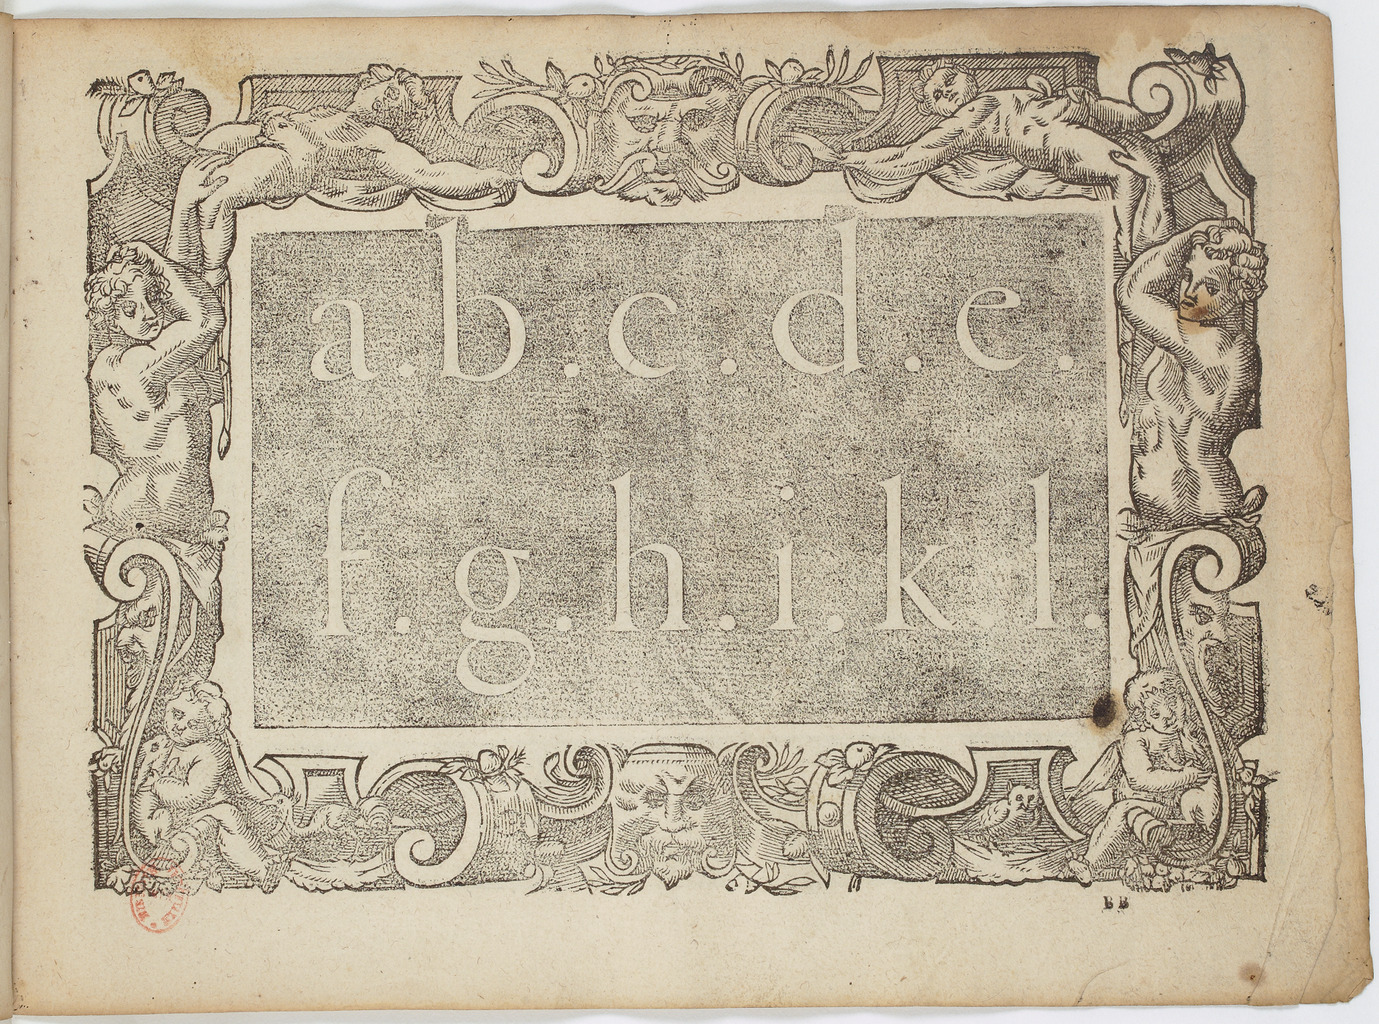 a.b.c.d.e.
f.g.h.i.k.l.
BB